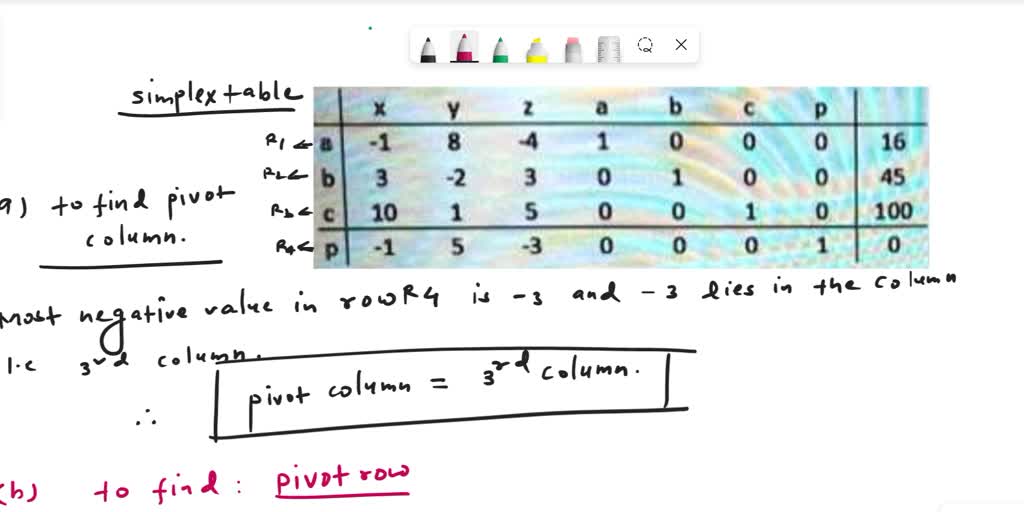 simplex table
x y z a b c p
R1 ← a -1 8 -4 1 0 0 0 16
R2 ← b 3 -2 3 0 1 0 0 45
R3 ← c 10 1 5 0 0 1 0 100
R4 ← p -1 5 -3 0 0 0 1 0
a) to find pivot
column.
most negative value in row R4 is -3 and -3 lies in the column
i.e 3rd column.
∴ pivot column = 3rd column.
(b) to find : pivot row